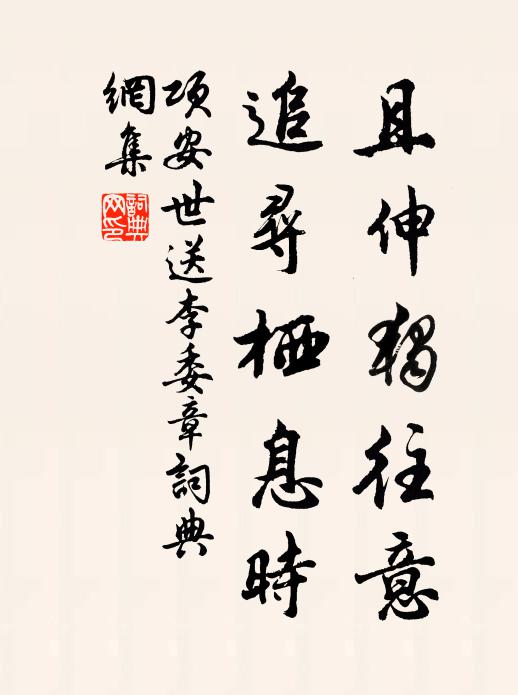 且伸獨往意
追尋栖息時
項安世送李委章詞典
網集
詞典网印